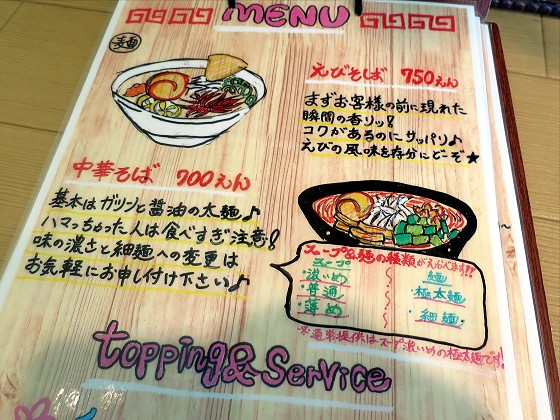 MENU
麺
えびそば 750えん
まずお客様の前に現れた
瞬間の香りッ!
コクがあるのにサッパリ♪
えびの風味を存分にどーぞ★
中華そば 700えん
基本はガツンと醤油の太麺♪
ハマっちゃった人は食べすぎ注意!
味の濃さと細麺への変更は
お気軽にお申し付け下さい♪
スープ&麺の種類がえらべます!!
スープ 麺
・濃いめ ・極太麺
・普通 ・細麺
・薄め
※通常提供はスープ濃いめの極太麺です!
topping&Service